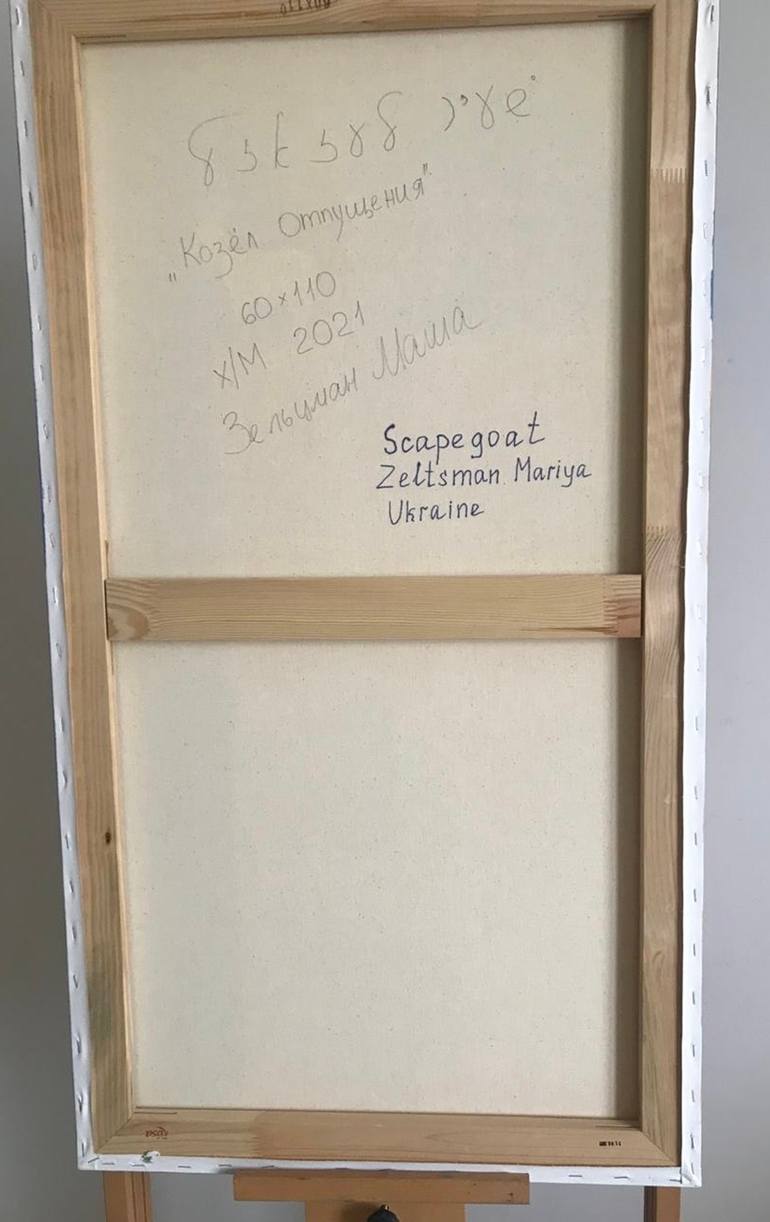 שעיר לעזאזל
„Козёл Отпущения"
60×110
Х/М 2021
Зельцман Маша
Scapegoat
Zeltsman Mariya
Ukraine